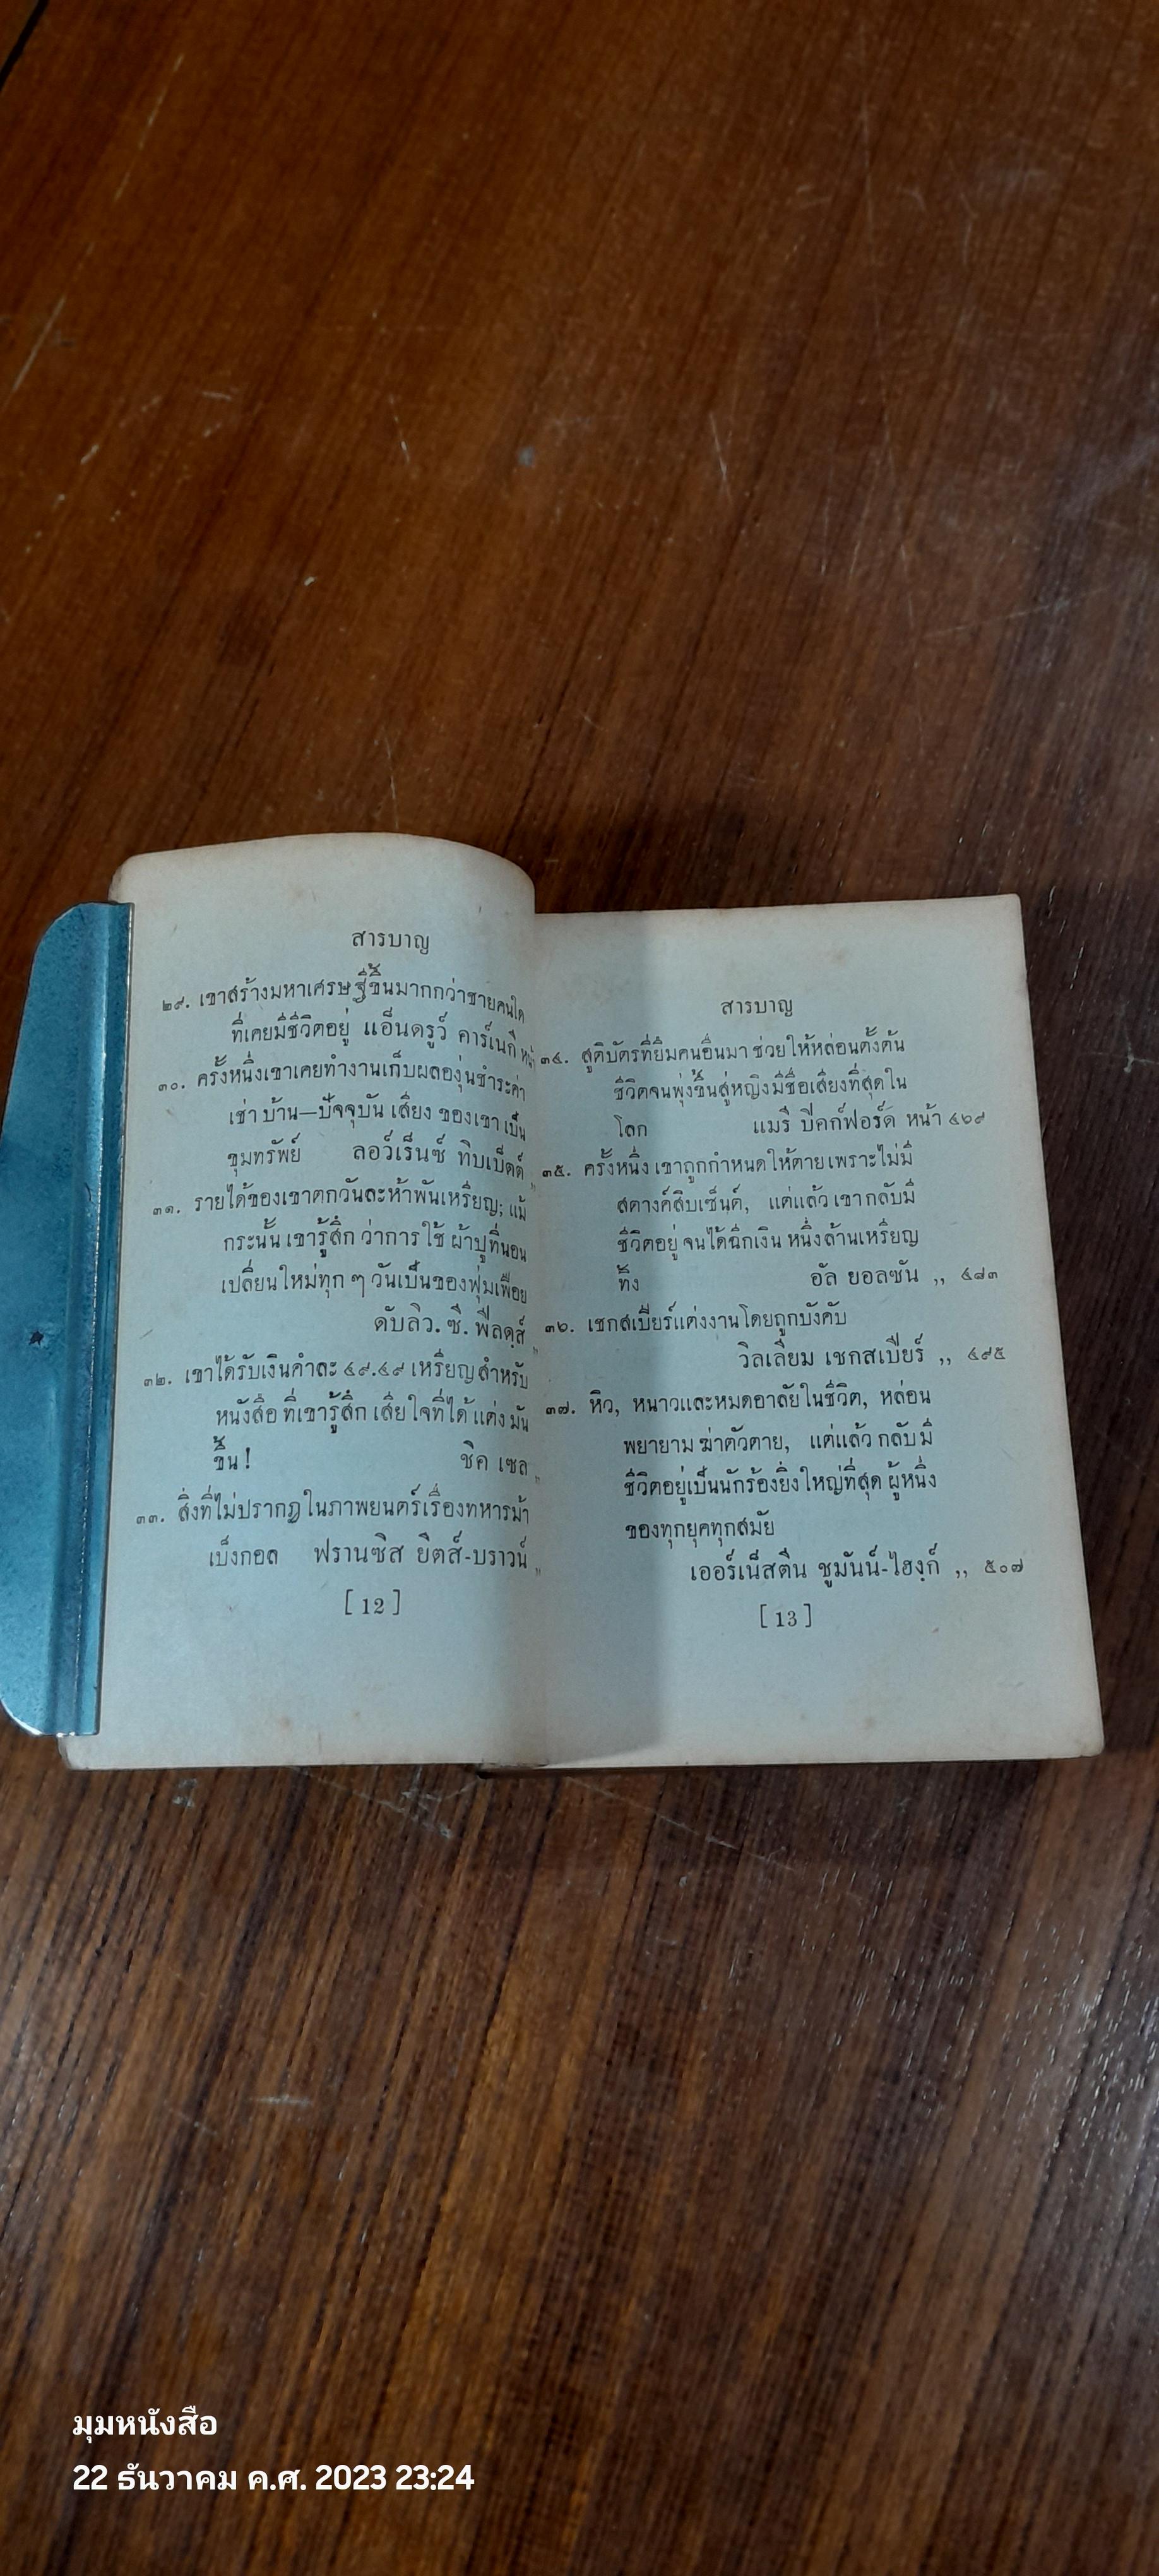 สารบาญ
๒๙. เขาสร้างมหาเศรษฐีขึ้นมากกว่าชายคนใด
ที่เคยมีชีวิตอยู่ แอ็นดรูว์ คาร์เนกี หน้า
๓๐. ครั้งหนึ่งเขาเคยทำงานเก็บผลองุ่นชำระค่า
เช่า บ้าน—ปัจจุบัน เสียง ของเขา เป็น
ขุมทรัพย์ ลอว์เร็นซ์ ทิบเบ็ตต์ ,,
๓๑. รายได้ของเขาตกวันละห้าพันเหรียญ; แม้
กระนั้น เขารู้สึก ว่าการใช้ ผ้าปูที่นอน
เปลี่ยนใหม่ทุก ๆ วันเป็นของฟุ่มเฟือย
ดับลิว. ซี. ฟีลดฺส์ ,,
๓๒. เขาได้รับเงินคำละ ๔๙.๔๙ เหรียญสำหรับ
หนังสือ ที่เขารู้สึก เสียใจที่ได้ แต่ง มัน
ขึ้น! ชิค เซล ,,
๓๓. สิ่งที่ไม่ปรากฏในภาพยนตร์เรื่องทหารม้า
เบ็งกอล ฟรานซิส ยีตส์-บราวน์ ,,
[ 12 ]
สารบาญ
๓๔. สูติบัตรที่ยืมคนอื่นมา ช่วยให้หล่อนตั้งต้น
ชีวิตจนพุ่งขึ้นสู่หญิงมีชื่อเสียงที่สุดใน
โลก แมรี ปีคก์ฟอร์ด หน้า ๔๖๙
๓๕. ครั้งหนึ่ง เขาถูกกำหนดให้ตายเพราะไม่มี
สตางค์สิบเซ็นต์, แต่แล้ว เขา กลับมี
ชีวิตอยู่ จนได้ฉีกเงิน หนึ่งล้านเหรียญ
ทิ้ง อัล ยอลซัน ,, ๔๘๓
๓๖. เชกสเปียร์แต่งงานโดยถูกบังคับ
วิลเลียม เชกสเปียร์ ,, ๔๙๕
๓๗. หิว, หนาวและหมดอาลัยในชีวิต, หล่อน
พยายาม ฆ่าตัวตาย, แต่แล้ว กลับ มี
ชีวิตอยู่เป็นนักร้องยิ่งใหญ่ที่สุด ผู้หนึ่ง
ของทุกยุคทุกสมัย
เออร์เน็สตีน ชูมันน์-ไฮงฺก์ ,, ๕๐๗
[ 13 ]
มุมหนังสือ
22 ธันวาคม ค.ศ. 2023 23:24